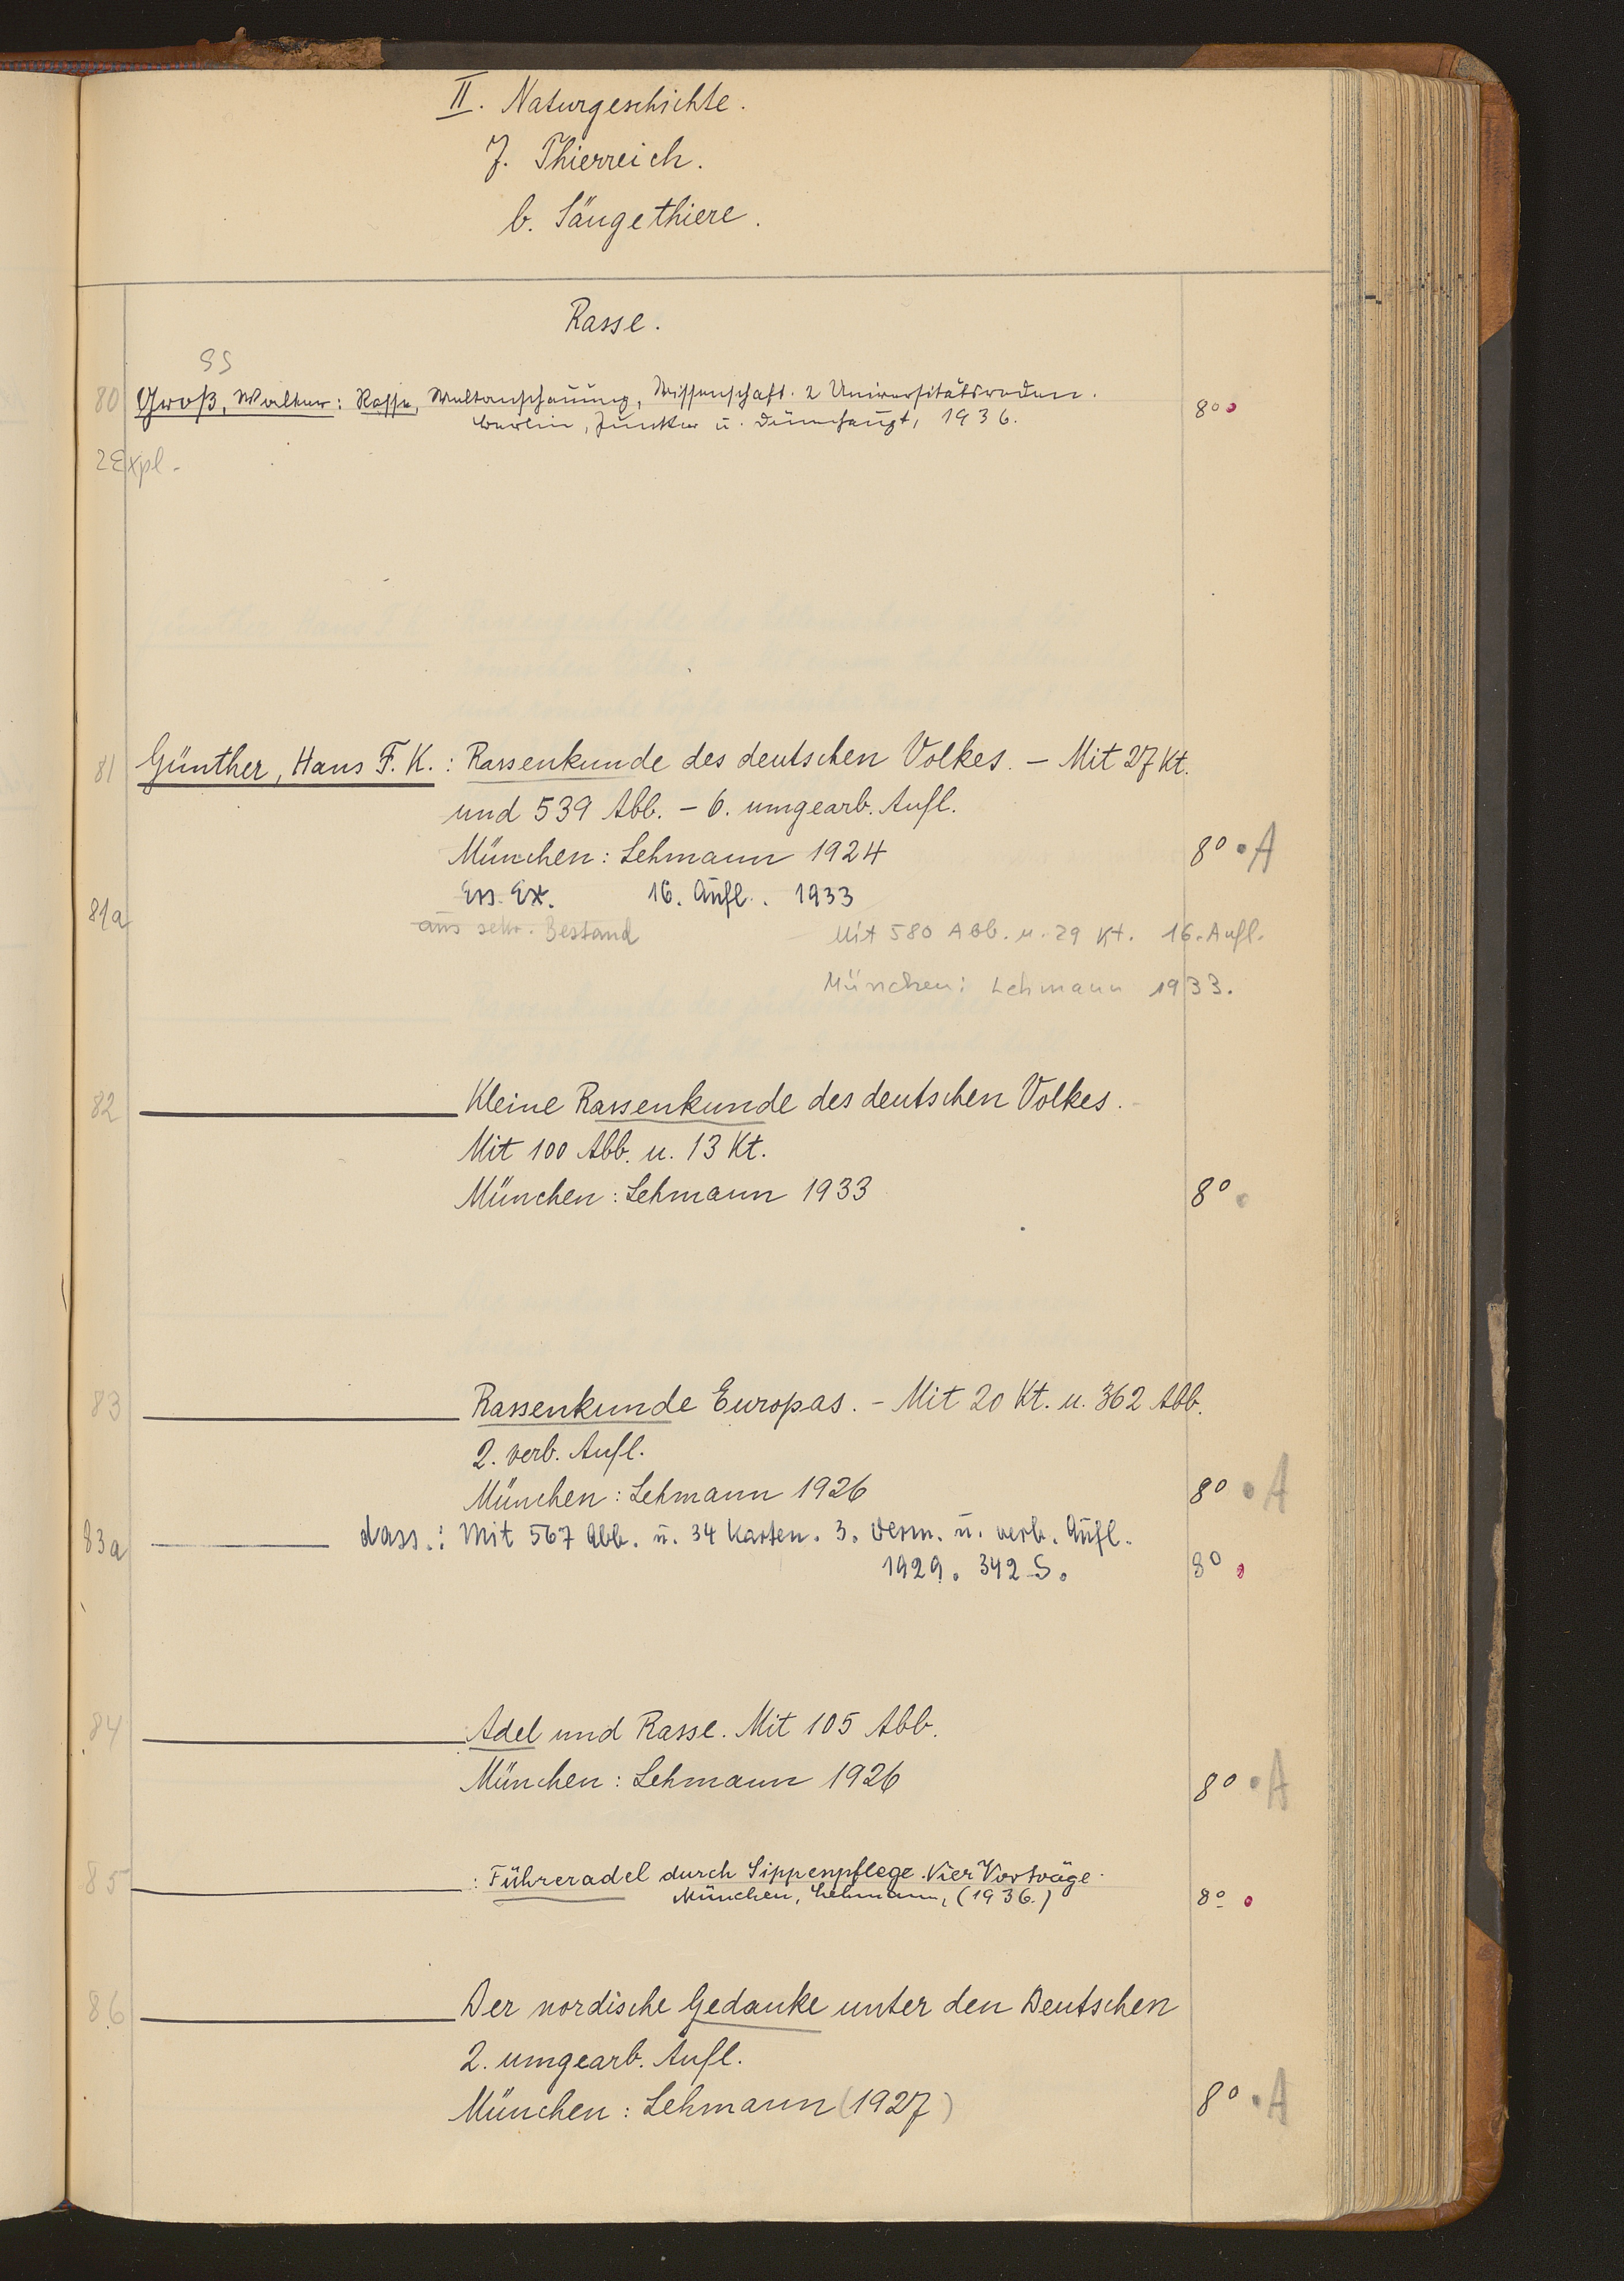 II. Naturgeschichte.
J. Thierreich.
b. Säugethiere.
Rasse.
SS
80 Groß, Walter: Rasse, Weltanschauung, Wissenschaft. 2 Universitätsreden.
Berlin, Junker u. Dünnhaupt, 1936. 8º
2 Expl.
81 Günther, Hans F. K.: Rassenkunde des deutschen Volkes. – Mit 27 Kt.
und 539 Abb. – 6. umgearb. Aufl.
München: Lehmann 1924 8º A
Ers. Ex. 16. Aufl. 1933
81a aus sekr. Bestand Mit 580 Abb. u. 29 Kt. 16. Aufl.
München: Lehmann 1933.
82 Kleine Rassenkunde des deutschen Volkes.
Mit 100 Abb. u. 13 Kt.
München: Lehmann 1933 8º
83 Rassenkunde Europas. – Mit 20 Kt. u. 362 Abb.
2. verb. Aufl.
München: Lehmann 1926 8º A
83a dass.: Mit 567 Abb. u. 34 Karten. 3. verm. u. verb. Aufl.
1929. 342 S. 8º
84 Adel und Rasse. Mit 105 Abb.
München: Lehmann 1926 8º A
85 : Führeradel durch Sippenpflege. Vier Vorträge.
München, Lehmann, (1936.) 8º
86 Der nordische Gedanke unter den Deutschen
2. umgearb. Aufl.
München: Lehmann (1927) 8º A